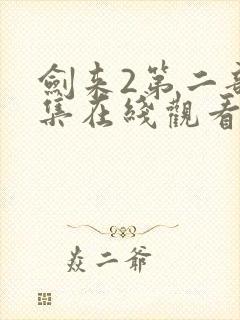 劍来2第二
集在綫觀看
焱二爺